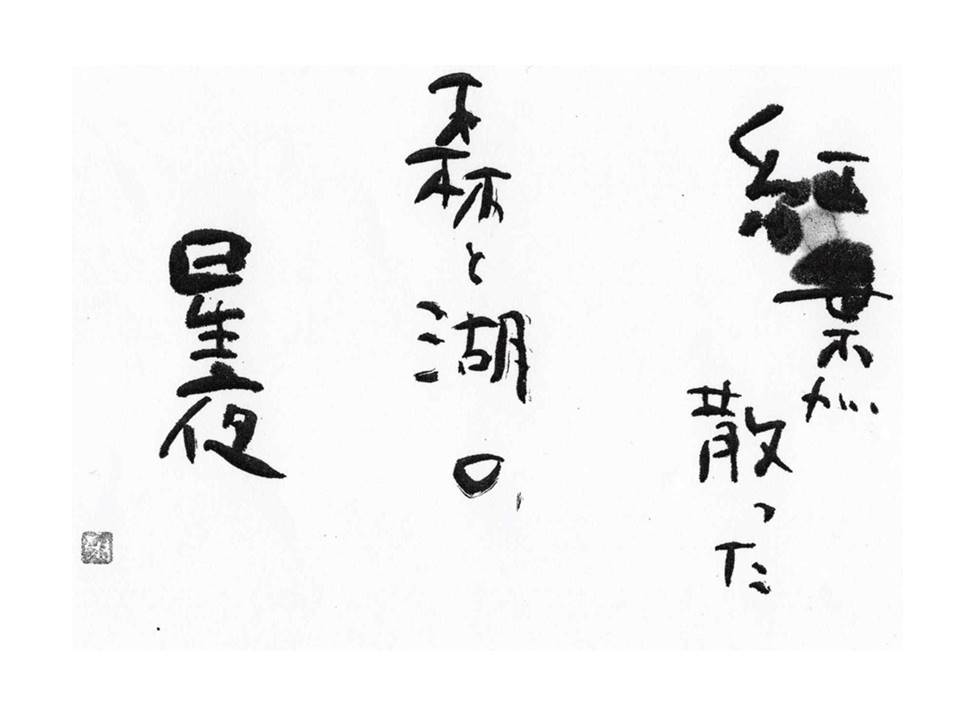 紅葉が
散った
森と湖の
星夜